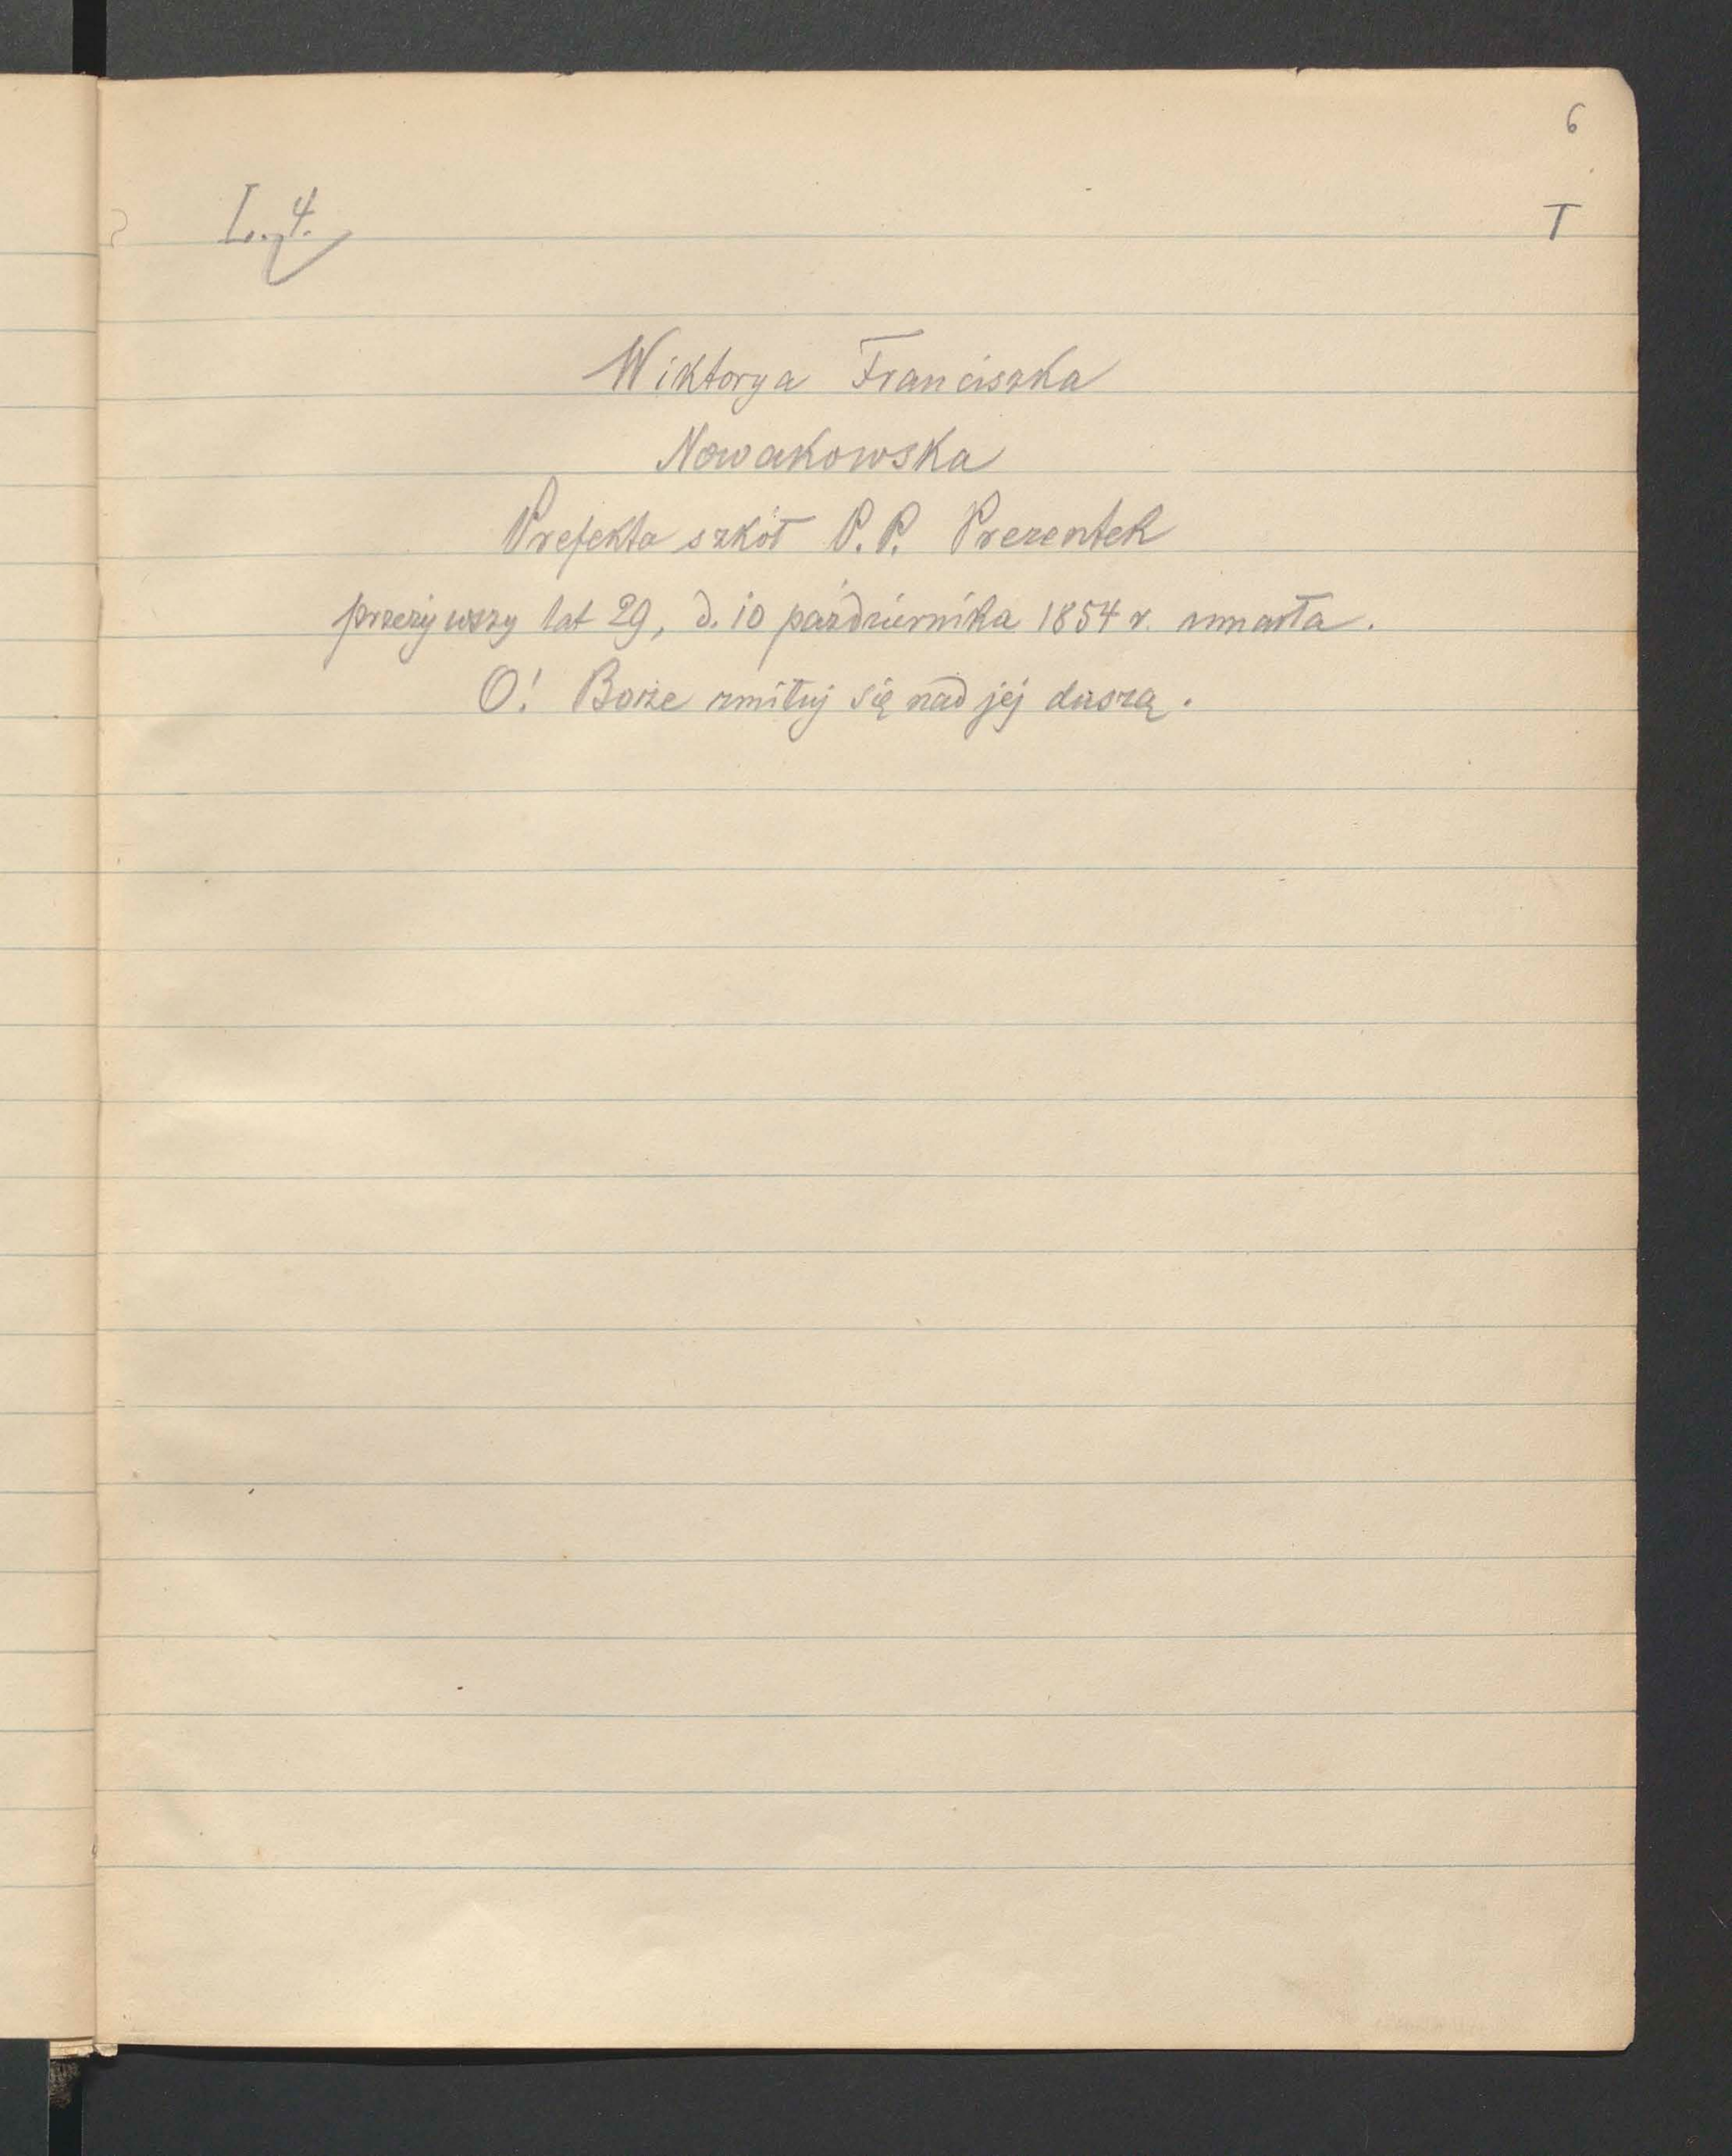 6
L. 4.
T
Wiktorya Franciszka
Nowakowska
Prefekta szkół P.P. Prezentek
przeżywszy lat 29, d. 10 października 1854 r. umarła.
O! Boże zmiłuj się nad jej duszą.